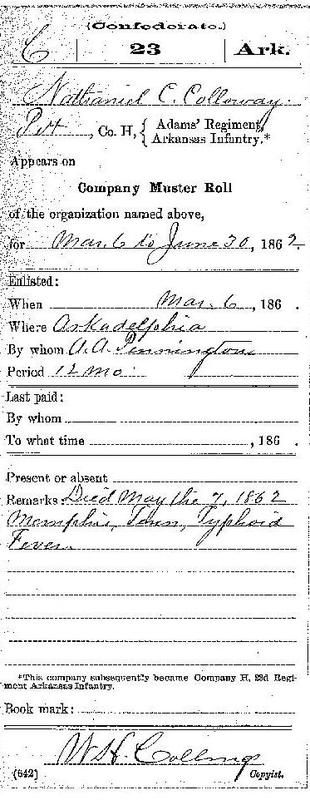 (Confederate.)
C | 23 | Ark.
Nathaniel C. Colloway.
Pvt, Co. H, { Adams' Regiment, Arkansas Infantry.*
Appears on
Company Muster Roll
of the organization named above,
for Mar. 6 to June 30, 1862.
Enlisted:
When Mar. 6, 186 .
Where Arkadelphia
By whom A. A. Pennington
Period 12 mo.
Last paid:
By whom
To what time , 186 .
Present or absent
Remarks: Died May the 7, 1862
Memphis, Tenn, Typhoid
Fever.
*This company subsequently became Company H, 23d Regi-
ment Arkansas Infantry.
Book mark:
W. H. Collings
(642) Copyist.